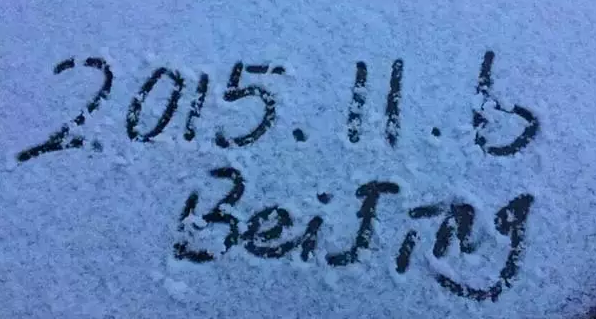 2015.11.6
BeiJing